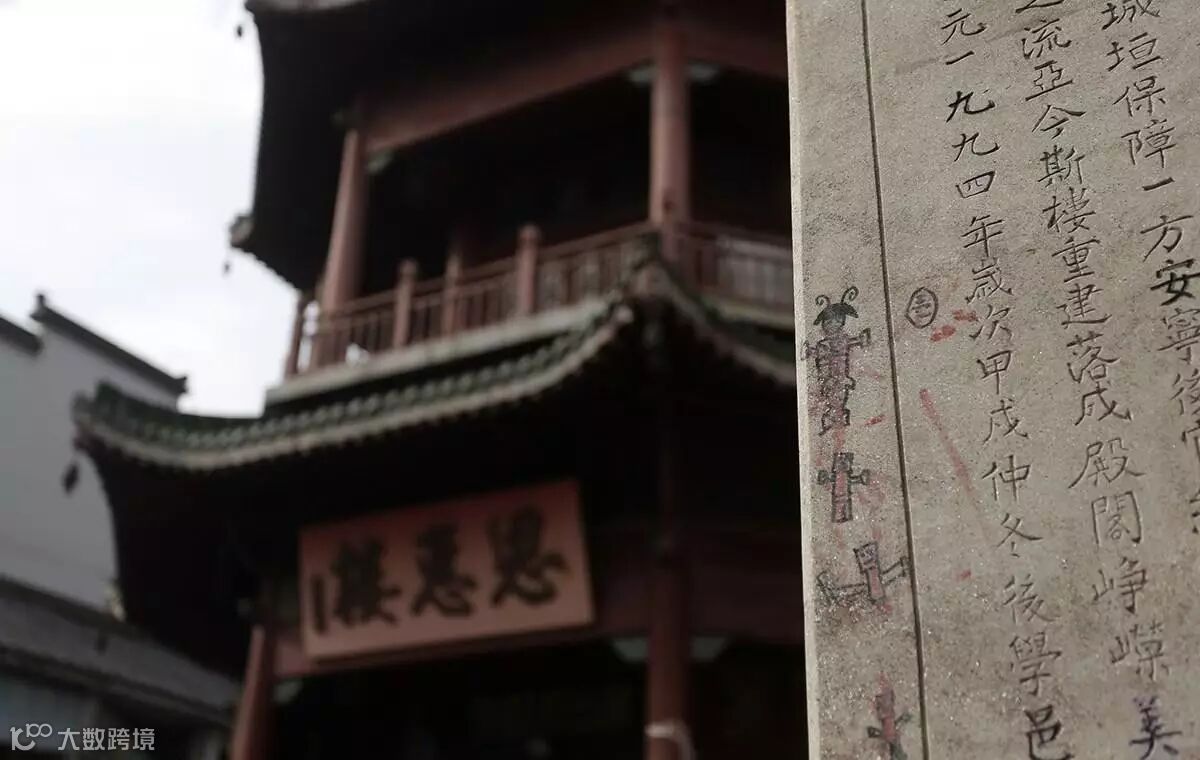 城垣保障一方安寧後
流亞今斯樓重建落成殿閣崢嶸美
元一九九四年歲次甲戌仲冬後學邑
恩惠樓
大数跨境